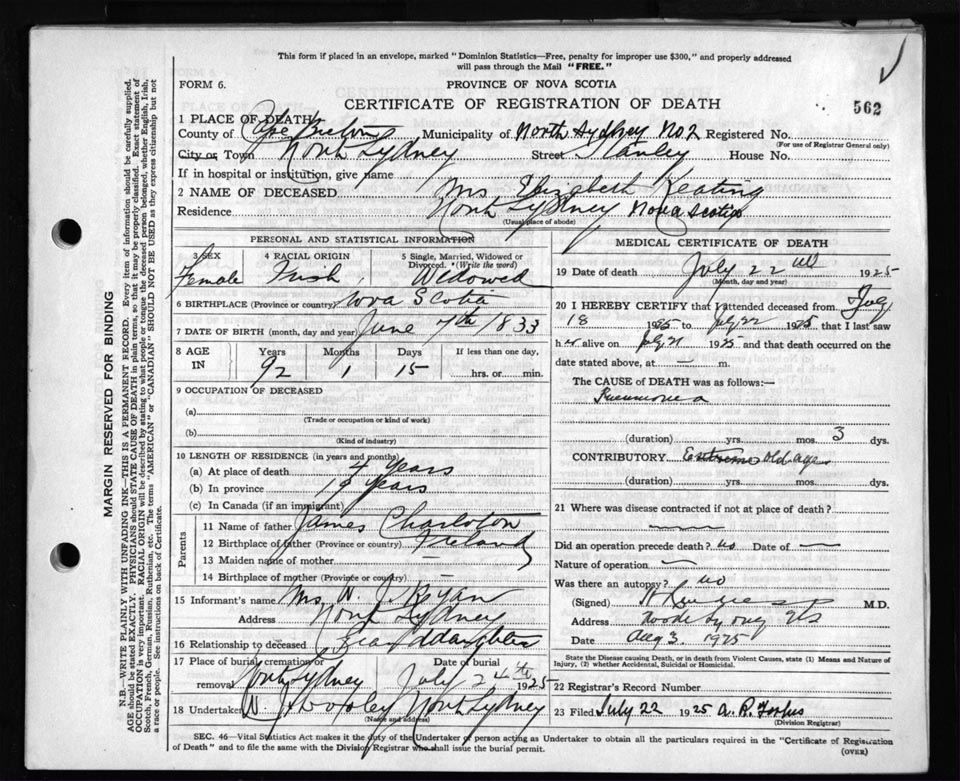 This form if placed in an envelope, marked "Dominion Statistics—Free, penalty for improper use $300," and properly addressed
will pass through the Mail "FREE."
FORM 6.
PROVINCE OF NOVA SCOTIA
CERTIFICATE OF REGISTRATION OF DEATH
562
1 PLACE OF DEATH
County of Cape Breton Municipality of North Sydney No 2 Registered No.
(For use of Registrar General only)
City or Town North Sydney Street Stanley House No.
If in hospital or institution, give name
2 NAME OF DECEASED Mrs Elizabeth Keating
Residence North Sydney Nova Scotia
(Usual place of abode)
PERSONAL AND STATISTICAL INFORMATION
3 SEX 4 RACIAL ORIGIN 5 Single, Married, Widowed or
Divorced. *(Write the word)
Female Irish Widowed
6 BIRTHPLACE (Province or country) Nova Scotia
7 DATE OF BIRTH (month, day and year) June 7th 1833
8 AGE IN Years Months Days If less than one day,
92 1 15 hrs. or min.
9 OCCUPATION OF DECEASED
(a)
(Trade or occupation or kind of work)
(b)
(Kind of industry)
10 LENGTH OF RESIDENCE (in years and months)
(a) At place of death 4 years
(b) In province years
(c) In Canada (if an immigrant)
Parents
11 Name of father James
12 Birthplace of father (Province or country) Ireland
13 Maiden name of mother —
14 Birthplace of mother (Province or country)
15 Informant's name Mrs. W. J. Ryan
Address North Sydney
16 Relationship to deceased
17 Place of burial, cremation or removal North Sydney
Date of burial July 24th 1925
18 Undertaker W. J. Dooley North Sydney
(Name and address)
MEDICAL CERTIFICATE OF DEATH
19 Date of death July 22 1925
(Month, day and year)
20 I HEREBY CERTIFY that I attended deceased from July
18 1925 to July 22 1925 that I last saw
her alive on July 21 1925 and that death occurred on the
date stated above, at — m.
The CAUSE OF DEATH was as follows:—
Pneumonia
(duration) yrs. mos. 3 dys.
CONTRIBUTORY Extreme old age
(duration) yrs. mos. dys.
21 Where was disease contracted if not at place of death?
Did an operation precede death? no Date of —
Nature of operation —
Was there an autopsy? no
(Signed) M.D.
Address North Sydney NS
Date Aug 3 1925
State the Disease causing Death, or in death from Violent Causes, state (1) Means and Nature of
Injury, (2) whether Accidental, Suicidal or Homicidal.
22 Registrar's Record Number
23 Filed July 22 1925 A. R. Forbes
(Division Registrar)
SEC. 46—Vital Statistics Act makes it the duty of the Undertaker or person acting as Undertaker to obtain all the particulars required in the "Certificate of Registration
of Death" and to file the same with the Division Registrar who shall issue the burial permit.
(OVER)
MARGIN RESERVED FOR BINDING
N.B.—WRITE PLAINLY WITH UNFADING INK—THIS IS A PERMANENT RECORD. Every item of information should be carefully supplied.
AGE should be stated EXACTLY. PHYSICIANS should STATE CAUSE OF DEATH in plain terms, so that it may be properly classified. Exact statement of
OCCUPATION is very important. RACIAL ORIGIN will be described by stating to what people or tongue the deceased person belonged, whether English, Irish,
Scotch, French, German, Russian, Ruthenian, etc. The terms "AMERICAN" or "CANADIAN" SHOULD NOT BE USED as they express citizenship but not
a race or people. See instructions on back of Certificate.